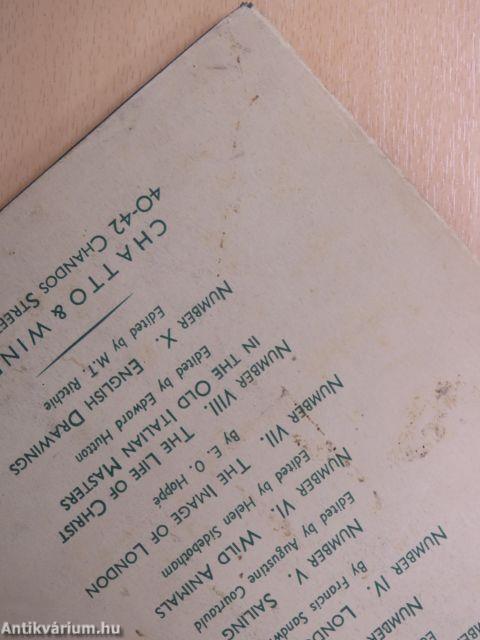 NUMBER
NUMBER IV. LONDO
By Francis Sandw
NUMBER V. SAILING
Edited by Augustine Courtauld
NUMBER VI. WILD ANIMALS
Edited by Helen Sidebotham
NUMBER VII. THE IMAGE OF LONDON
By E. O. Hoppé
NUMBER VIII. THE LIFE OF CHRIST
IN THE OLD ITALIAN MASTERS
Edited by Edward Hutton
NUMBER X. ENGLISH DRAWINGS
Edited by M.T. Ritchie
CHATTO & WIN
40-42 CHANDOS STREET
Antikvárium.hu